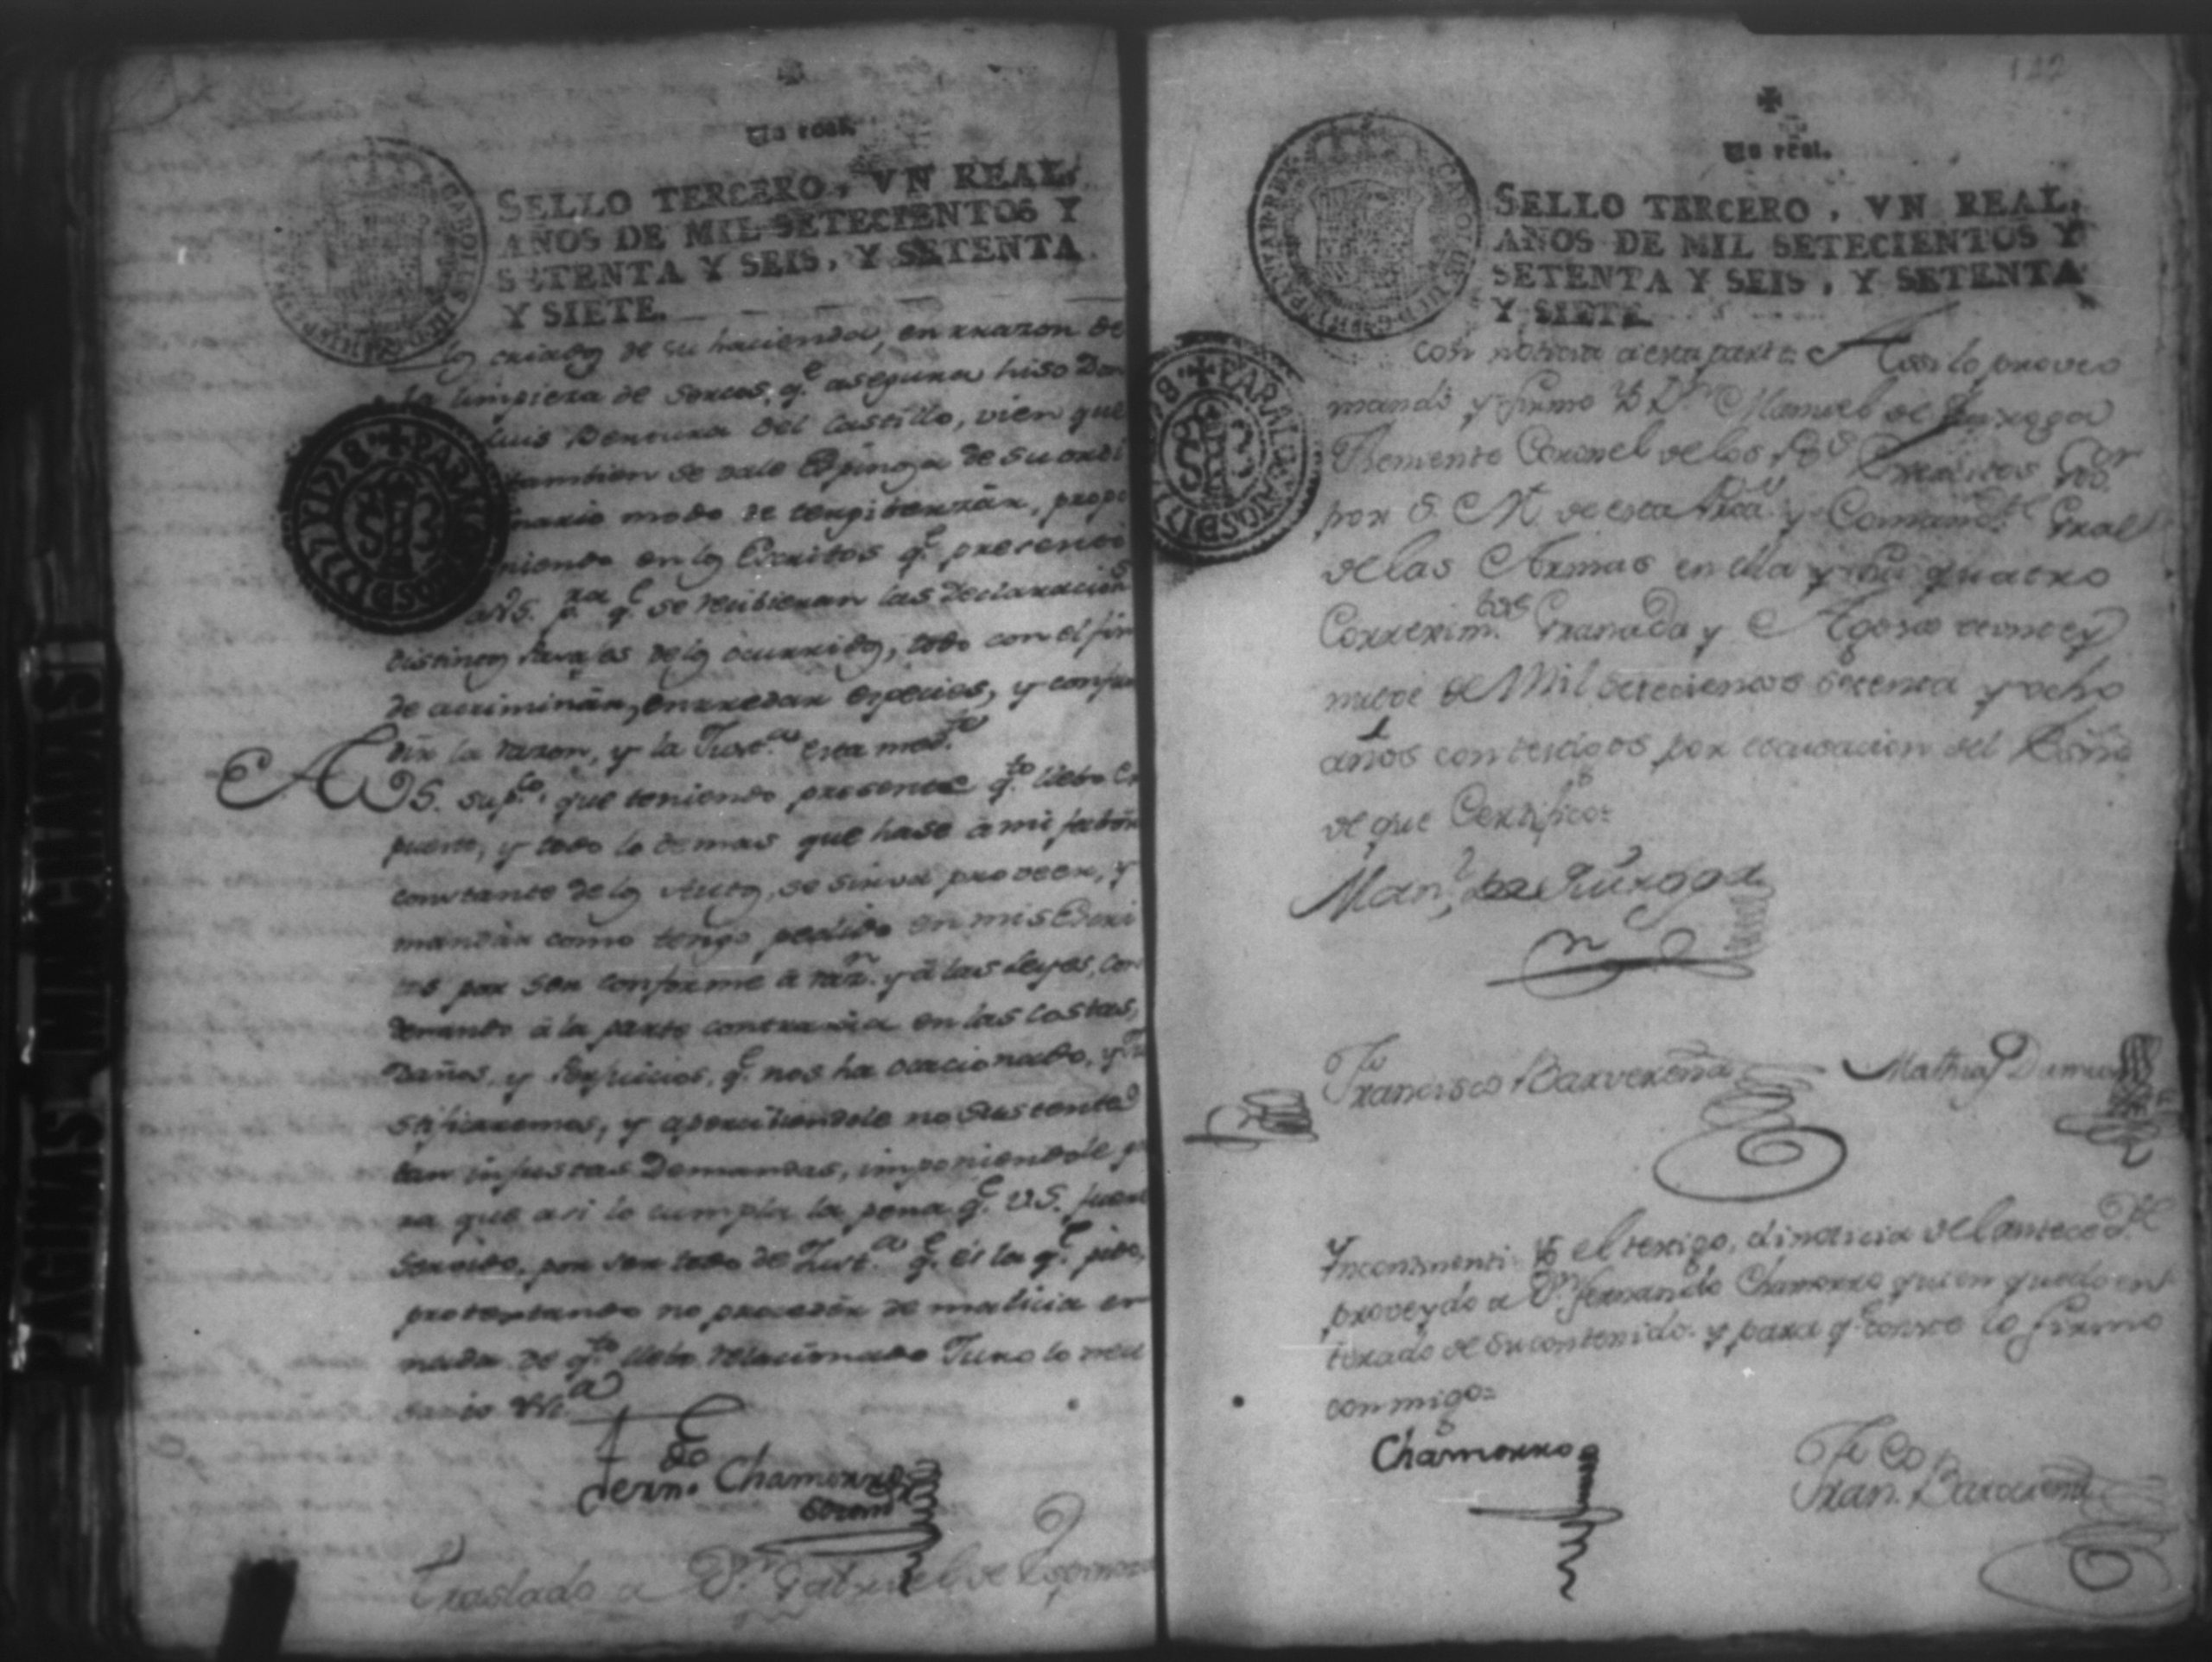 Un real.
SELLO TERCERO, VN REAL,
AÑOS DE MIL SETECIENTOS Y
SETENTA Y SEIS, Y SETENTA
Y SIETE.
los criados de su hacienda, en rrazon de
la limpieza de Sercos, q.e asegura hiso Don
Luis Bentura del Castillo, vien que
tambien se vale Espinoza de su ordi
nario modo de tergiberzàr, propo
niendo en los Escritos q.e presento
a VS. p.ra q.e se recibieran las Declaracio.s
distintos de los ocurridos, todo con el fin
de acriminàr, enrredar especies, y confun
dir la razon, y la Just.a esta med.te
A VS. sup.co que teniendo presente q.to llebo Ex
puesto, y todo lo demas que hase à mi fabòr
constante de los Autos, se sirva proveer, y
mandàr como tengo pedido en mis Escri
tos por ser conforme à raz.n y à las Leyes, con
denando à la parte contraria en las Costas,
Daños, y Perjuicios, q.e nos ha ocacionado, y Ju
stificaremos, y apercibiendole no sustente
tan injustas Demandas, imponiendole pa
ra que asi lo cumpla la pena q.e VS. fuere
Servido, por ser todo de Just.a q.e es la q.e pido,
protextando no procedèr de malicia en
nada de q.to llebo relacionado Juro lo nece
sario &c.a
Fern.do Chamorro
Traslado a D.n Gabriel de Espinoza
122
Un real.
SELLO TERCERO, VN REAL,
AÑOS DE MIL SETECIENTOS Y
SETENTA Y SEIS, Y SETENTA
Y SIETE.
con noticia a esta parte: Assi lo proveo
mando y firmo Yo D.n Manuel de Quiroga
Theniente Coronel de los R.s Exercitos Gov.or
por S. M. de esta Prov.a y Comand.te Gral
de las Armas en ella y sus quatro
Correxim.tos Granada y Agosto veinte y
nueve de Mil setecientos setenta y ocho
años con testigos por escusacion del Essno
de que Certifico:
Man.l de Quiroga
T.o
Francisco Barverena
Mathias
Yncontinenti Yo el testigo, di noticia del anteced.te
proveydo a D.n Fernando Chamorro quien quedo en
terado de su contenido y para q.e conste lo firmo
conmigo:
Chamorro
T.o
Fran.co Barverena